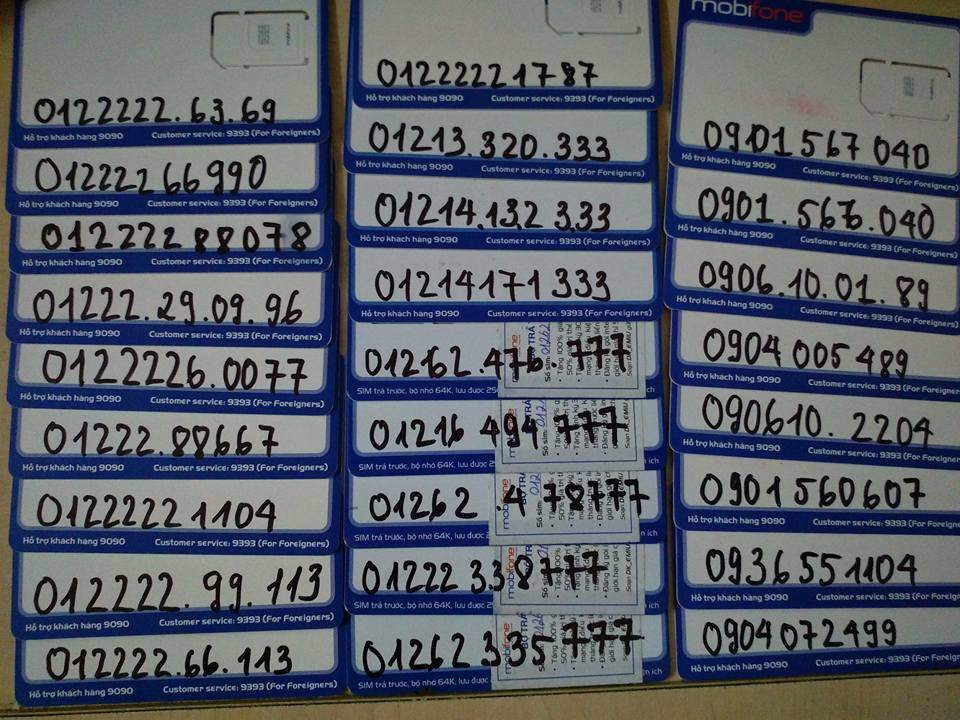 0122222.63.69
Hỗ trợ khách hàng 9090 Customer service: 9393 (For Foreigners)
0122226 6990
Hỗ trợ khách hàng 9090 Customer service: 9393 (For Foreigners)
012222288078
Hỗ trợ khách hàng 9090 Customer service: 9393 (For Foreigners)
01222.29.09.96
Hỗ trợ khách hàng 9090 Customer service: 9393 (For Foreigners)
0122226.0077
Hỗ trợ khách hàng 9090 Customer service: 9393 (For Foreigners)
01222.88667
Hỗ trợ khách hàng 9090 Customer service: 9393 (For Foreigners)
0122222 1104
Hỗ trợ khách hàng 9090 Customer service: 9393 (For Foreigners)
012222.99.113
Hỗ trợ khách hàng 9090 Customer service: 9393 (For Foreigners)
012222.66.113
Hỗ trợ khách hàng 9090 Customer service: 9393 (For Foreigners)
mobifone
01222221787
Hỗ trợ khách hàng 9090 Customer service: 9393 (For Foreigners)
01213.320.333
Hỗ trợ khách hàng 9090 Customer service: 9393 (For Foreigners)
01214.132 333
Hỗ trợ khách hàng 9090 Customer service: 9393 (For Foreigners)
01214171 333
Hỗ trợ khách hàng 9090 Customer service: 9393 (For Foreigners)
01262.476.777
SIM trả trước, bộ nhớ 64K, lưu được
01216 494 777
SIM trả trước, bộ nhớ 64K, lưu được
01262.478777
SIM trả trước, bộ nhớ 64K, lưu được
01222 338777
SIM trả trước, bộ nhớ 64K, lưu được
01262 335 777
SIM trả trước, bộ nhớ 64K, lưu được
mobifone
0901 567 040
Hỗ trợ khách hàng 9090 Customer service: 9393 (For Foreigners)
0901.567.040
Hỗ trợ khách hàng 9090 Customer service: 9393 (For Foreigners)
0906.10.01.89
Hỗ trợ khách hàng 9090 Customer service: 9393 (For Foreigners)
0904 005 489
Hỗ trợ khách hàng 9090 Customer service: 9393 (For Foreigners)
090610.2204
Hỗ trợ khách hàng 9090 Customer service: 9393 (For Foreigners)
0901560607
Hỗ trợ khách hàng 9090 Customer service: 9393 (For Foreigners)
0936551104
Hỗ trợ khách hàng 9090 Customer service: 9393 (For Foreigners)
0904072499
Hỗ trợ khách hàng 9090 Customer service: 9393 (For Foreigners)